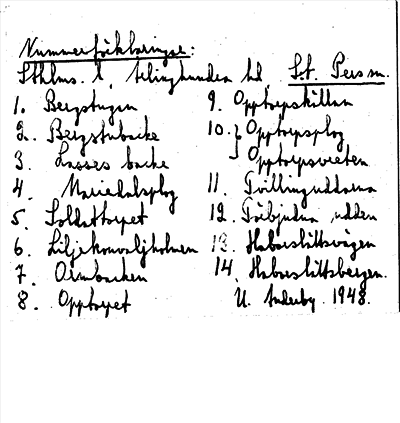 Nummerförklaringar:
Sthlms. l, Ärlinghundra hd, S:t Pers sn.
1. Bergstugan
2. Bergstubacke
3. Lasses backe
4. Mariedalsplog
5. Soldattorpet
6. Liljekonvaljholmen
7. Ormbacken
8. Opptorpet
9. Opptorpskällan
10. Opptorpsplog
Opptorpsvreten
11. Tvillinguddarna
12. Förbjudna udden
13. Haborslättsvägen
14. Haborslättsbergen.
U. Anderby. 1948.